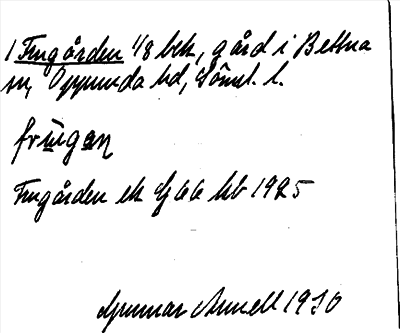 1 Frugården 1/8 bek, gård i Bettna
sn, Oppunda hd, Söml. l.
frugan
Frugården ek G 66 hb 1925
Gunnar Arnell 1930